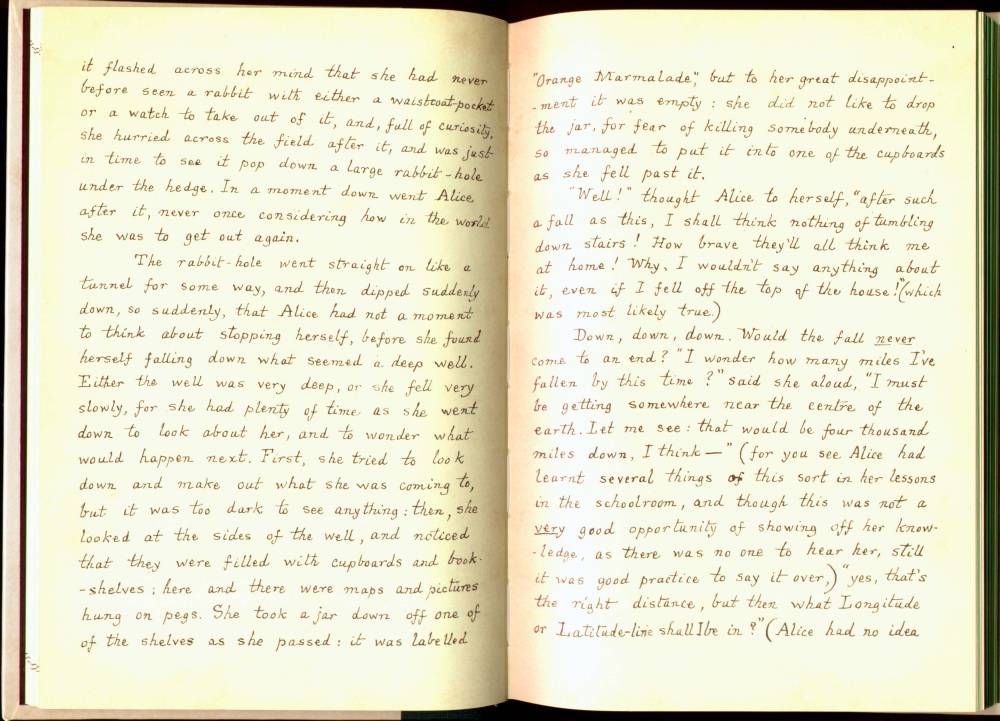 it flashed across her mind that she had never
before seen a rabbit with either a waistcoat-pocket
or a watch to take out of it, and, full of curiosity,
she hurried across the field after it, and was just
in time to see it pop down a large rabbit-hole
under the hedge. In a moment down went Alice
after it, never once considering how in the world
she was to get out again.
The rabbit-hole went straight on like a
tunnel for some way, and then dipped suddenly
down, so suddenly, that Alice had not a moment
to think about stopping herself, before she found
herself falling down what seemed a deep well.
Either the well was very deep, or she fell very
slowly, for she had plenty of time as she went
down to look about her, and to wonder what
would happen next. First, she tried to look
down and make out what she was coming to,
but it was too dark to see anything: then, she
looked at the sides of the well, and noticed
that they were filled with cupboards and book-
-shelves; here and there were maps and pictures
hung on pegs. She took a jar down off one of
of the shelves as she passed: it was labelled
"Orange Marmalade," but to her great disappoint-
-ment it was empty: she did not like to drop
the jar, for fear of killing somebody underneath,
so managed to put it into one of the cupboards
as she fell past it.
"Well!" thought Alice to herself, "after such
a fall as this, I shall think nothing of tumbling
down stairs! How brave they'll all think me
at home! Why, I wouldn't say anything about
it, even if I fell off the top of the house!" (which
was most likely true.)
Down, down, down. Would the fall never
come to an end? "I wonder how many miles I've
fallen by this time?" said she aloud, "I must
be getting somewhere near the centre of the
earth. Let me see: that would be four thousand
miles down, I think—" (for you see Alice had
learnt several things of this sort in her lessons
in the schoolroom, and though this was not a
very good opportunity of showing off her know-
-ledge, as there was no one to hear her, still
it was good practice to say it over,) "yes, that's
the right distance, but then what Longitude
or Latitude-line shall I be in?" (Alice had no idea